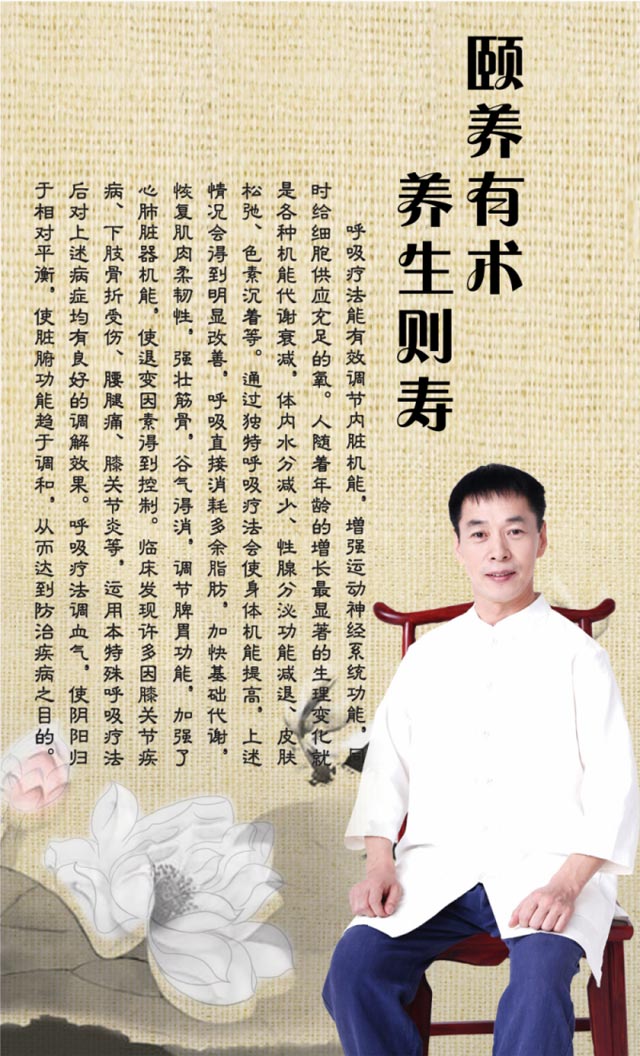 颐养有术
养生则寿
呼吸疗法能有效调节内脏机能，增强运动神经系统功能，同
时给细胞供应充足的氧。人随着年龄的增长最显著的生理变化就
是各种机能代谢衰减，体内水分减少、性腺分泌功能减退、皮肤
松弛、色素沉着等。通过独特呼吸疗法会使身体机能提高，上述
情况会得到明显改善，呼吸直接消耗多余脂肪，加快基础代谢，
恢复肌肉柔韧性，强壮筋骨，谷气得消，调节脾胃功能，加强了
心肺脏器机能，使退变因素得到控制。临床发现许多因膝关节疾
病、下肢骨折受伤、腰腿痛、膝关节炎等，运用本特殊呼吸疗法
后对上述病症均有良好的调解效果。呼吸疗法调血气，使阴阳归
于相对平衡，使脏腑功能趋于调和，从而达到防治疾病之目的。